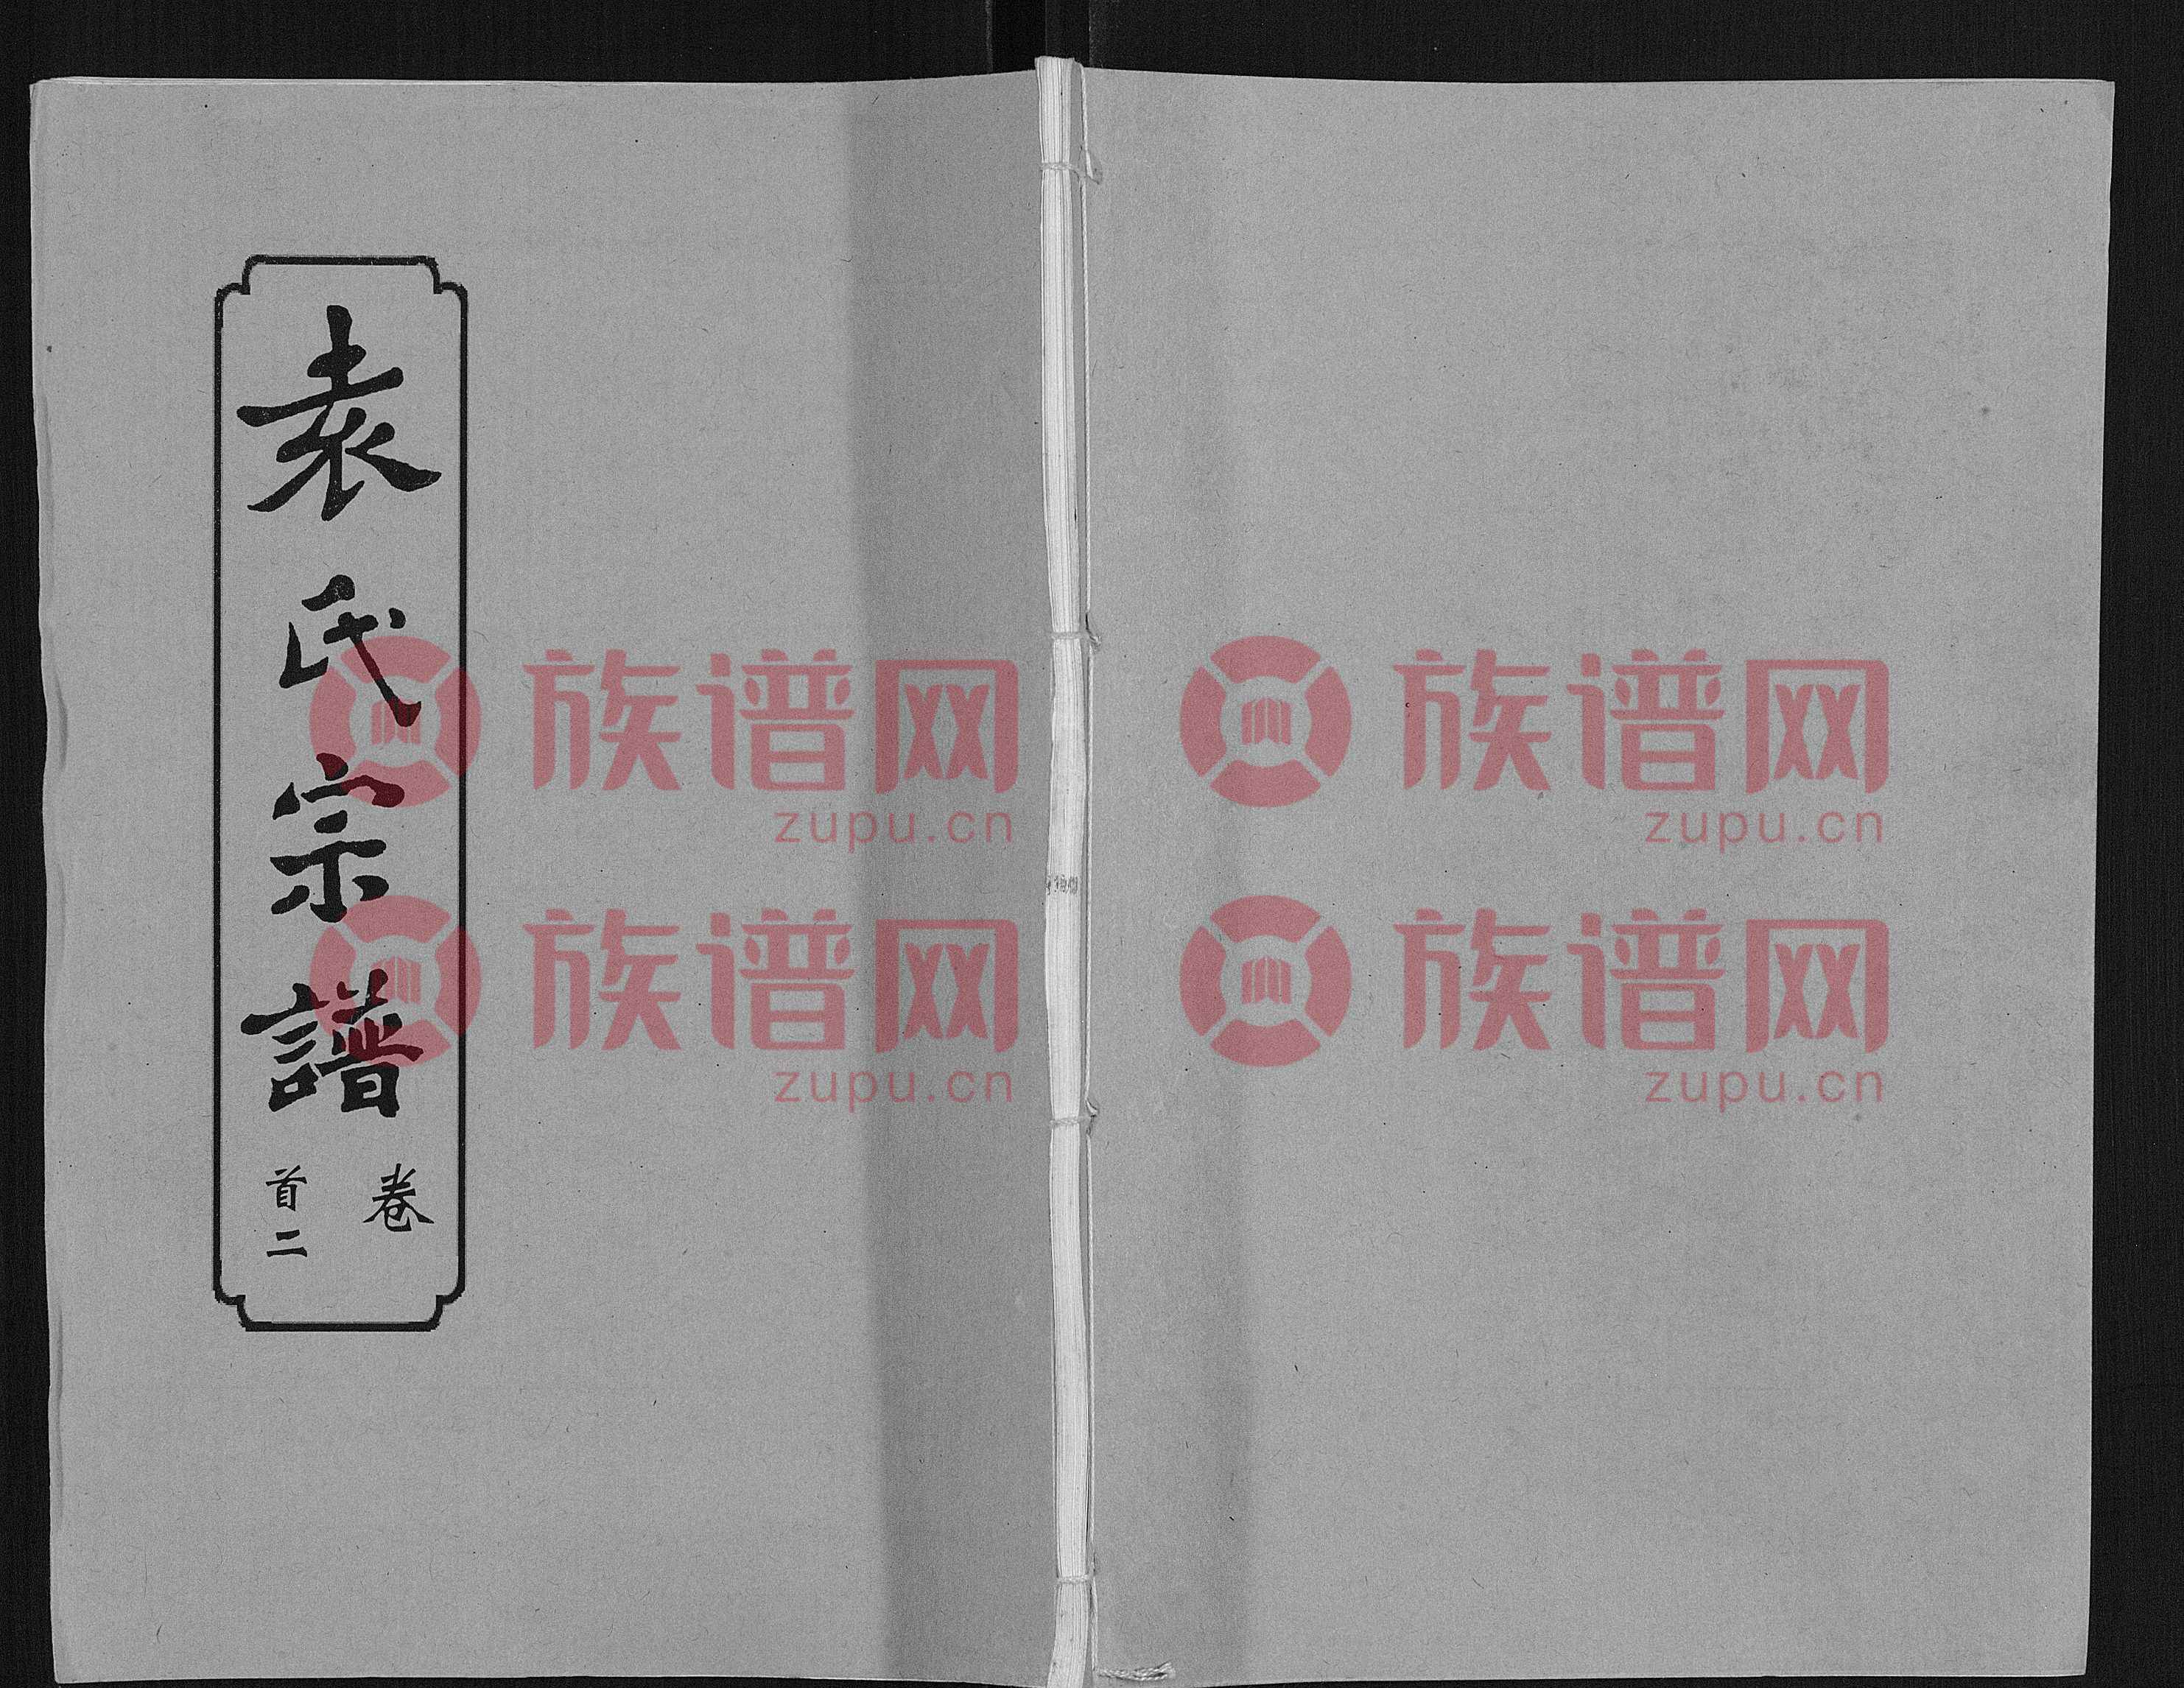 袁氏宗譜
卷
首二
族谱网
zupu.cn
族谱网
zupu.cn
族谱网
zupu.cn
族谱网
zupu.cn